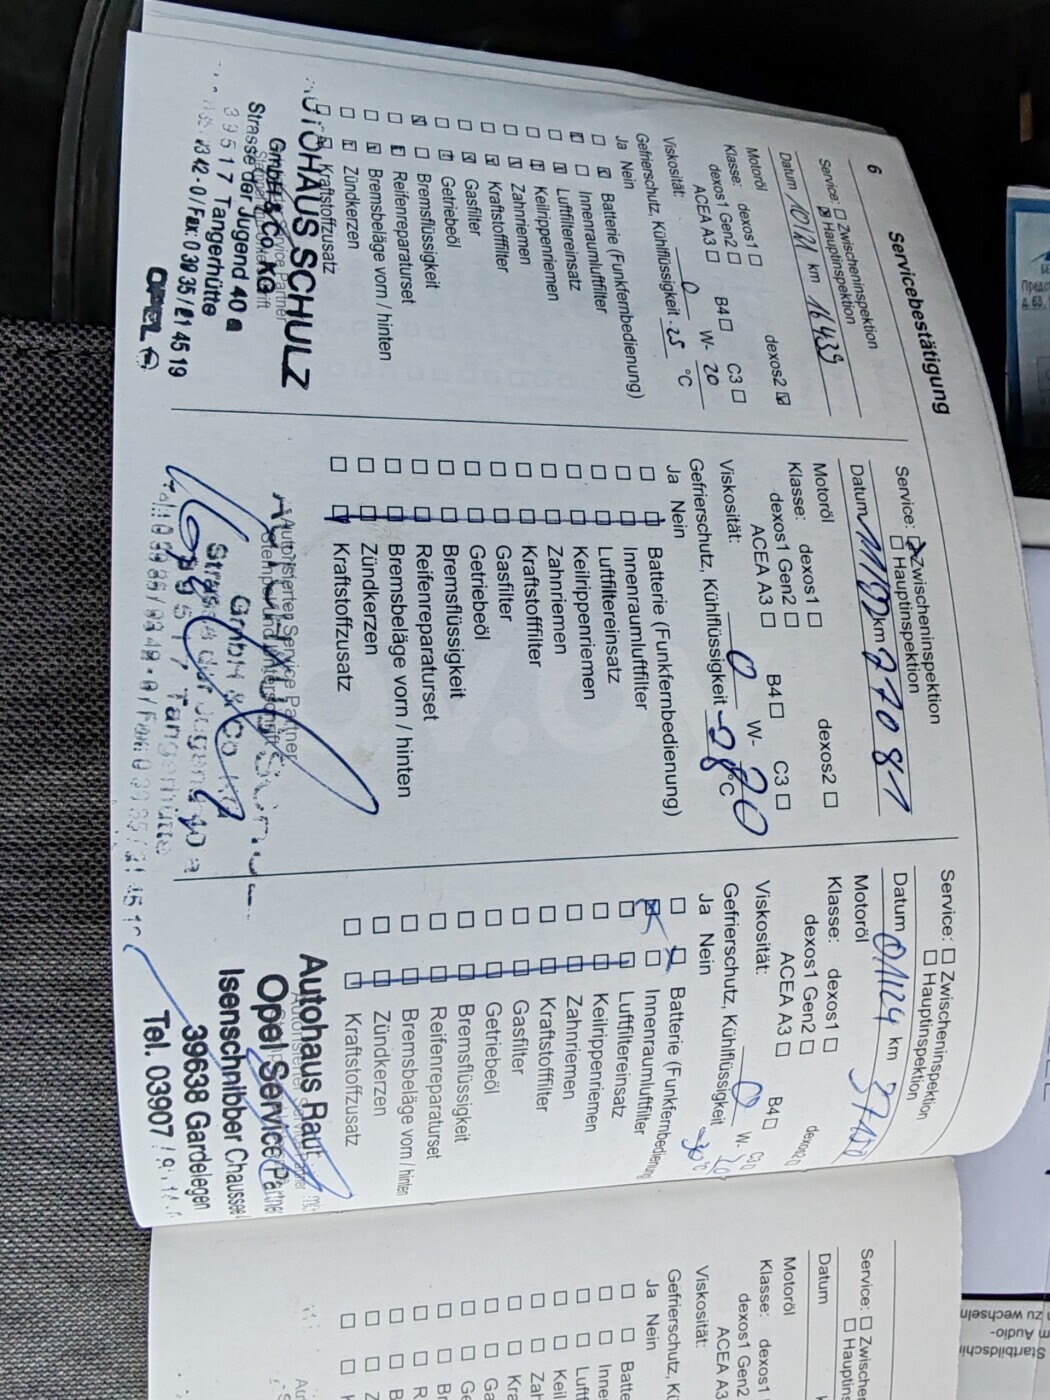 6
Servicebestätigung
Service: ☐ Zwischeninspektion
☒ Hauptinspektion
Datum 10/21 km 16439
Motoröl
Klasse: dexos1 ☐ dexos2 ☒
dexos1 Gen2 ☐ B4 ☐ C3 ☐
ACEA A3 ☐
Viskosität: 0 W- 20
Gefrierschutz, Kühlflüssigkeit -25 °C
Ja Nein
☐ ☒ Batterie (Funkfernbedienung)
☒ ☐ Innenraumluftfilter
☐ ☒ Luftfiltereinsatz
☐ ☒ Keilrippenriemen
☐ ☒ Zahnriemen
☐ ☒ Kraftstofffilter
☐ ☒ Gasfilter
☐ ☒ Getriebeöl
☒ ☐ Bremsflüssigkeit
☐ ☒ Reifenreparaturset
☐ ☒ Bremsbeläge vorn / hinten
☐ ☒ Zündkerzen
☐ ☒ Kraftstoffzusatz
AUTOHAUS SCHULZ
GmbH & Co. KG
Strasse der Jugend 40 a
39517 Tangerhütte
OPEL
Service: ☒ Zwischeninspektion
☐ Hauptinspektion
Datum km 27081
Motoröl
Klasse: dexos1 ☐ dexos2 ☐
dexos1 Gen2 ☐ B4 ☐ C3 ☐
ACEA A3 ☐
Viskosität: 0 W- 20
Gefrierschutz, Kühlflüssigkeit -28 °C
Ja Nein
Batterie (Funkfernbedienung)
Innenraumluftfilter
Luftfiltereinsatz
Keilrippenriemen
Zahnriemen
Kraftstofffilter
Gasfilter
Getriebeöl
Bremsflüssigkeit
Reifenreparaturset
Bremsbeläge vorn / hinten
Zündkerzen
Kraftstoffzusatz
Autorisierter Service Partner
GmbH & Co. KG
Strasse der Jugend 40 a
39517 Tangerhütte
Service: ☐ Zwischeninspektion
☐ Hauptinspektion
Datum 01/24 km
Motoröl
Klasse: dexos1 ☐ dexos2 ☐
dexos1 Gen2 ☐ B4 ☐ C3 ☐
ACEA A3 ☐
Viskosität: 0 W-
Gefrierschutz, Kühlflüssigkeit -30 °C
Ja Nein
Batterie (Funkfernbedienung)
Innenraumluftfilter
Luftfiltereinsatz
Keilrippenriemen
Zahnriemen
Kraftstofffilter
Gasfilter
Getriebeöl
Bremsflüssigkeit
Reifenreparaturset
Bremsbeläge vorn / hinten
Zündkerzen
Kraftstoffzusatz
Autohaus Raut
Opel Service
Isenschnibber Chaussee
39638 Gardelegen
Tel. 03907 /
Service: ☐ Zwischen
☐ Haupt
Datum
Motoröl
Klasse: dexos1
dexos1 Gen2
ACEA A3
Viskosität:
Gefrierschutz,
Ja Nein
av.by